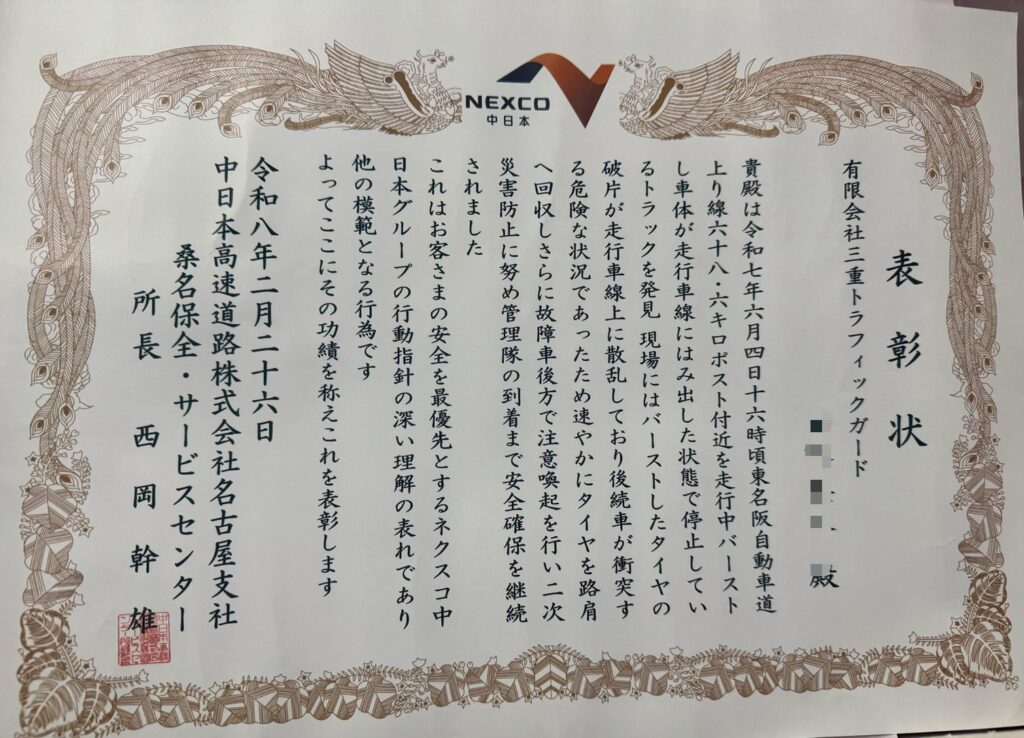 NEXCO
中日本
表彰状
有限会社三重トラフィックガード
殿
貴殿は令和七年六月四日十六時頃東名阪自動車道
上り線六十八・六キロポスト付近を走行中バースト
し車体が走行車線にはみ出した状態で停止してい
るトラックを発見 現場にはバーストしたタイヤの
破片が走行車線上に散乱しており後続車が衝突す
る危険な状況であったため速やかにタイヤを路肩
へ回収しさらに故障車後方で注意喚起を行い二次
災害防止に努め管理隊の到着まで安全確保を継続
されました
これはお客さまの安全を最優先とするネクスコ中
日本グループの行動指針の深い理解の表れであり
他の模範となる行為です
よってここにその功績を称えこれを表彰します
令和八年二月二十六日
中日本高速道路株式会社名古屋支社
桑名保全・サービスセンター
所長 西岡幹雄